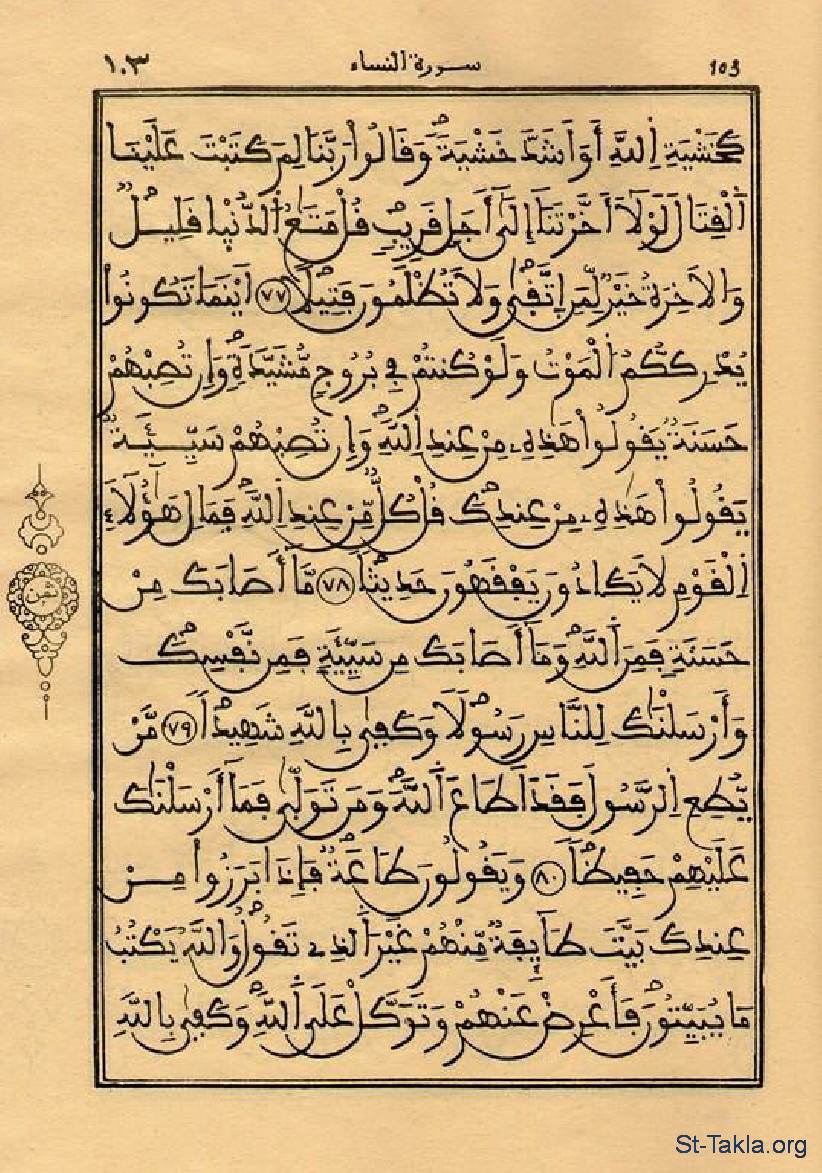 ١٠٣ سورة النساء 103
كَخَشْيَةِ اِ۬للَّهِ أَوَ اَشَدَّ خَشْيَةٗ وَقَالُواْ رَبَّنَا لِمَ كَتَبْتَ عَلَيْنَا
اَ۬لْقِتَالَ لَوْلَآ أَخَّرْتَنَآ إِلَىٰٓ أَجَلٖ قَرِيبٖ قُلْ مَتَٰعُ اُ۬لدُّنْيَا قَلِيلٞ
وَالَاخِرَةُ خَيْرٞ لِّمَنِ اِ۪تَّق۪ىٰ وَلَا تُظْلَمُونَ فَتِيلًا ٧٧ اَيْنَمَا تَكُونُواْ
يُدْرِككُّمُ اُ۬لْمَوْتُ وَلَوْ كُنتُمْ فِے بُرُوجٖ مُّشَيَّدَةٖ وَإِن تُصِبْهُمْ
حَسَنَةٞ يَقُولُواْ هَٰذِهِۦ مِنْ عِندِ اِ۬للَّهِ وَإِن تُصِبْهُمْ سَيِّئَةٞ
يَقُولُواْ هَٰذِهِۦ مِنْ عِندِكَ قُلْ كُلّٞ مِّنْ عِندِ اِ۬للَّهِ فَمَالِ هَٰٓؤُلَآءِ
اِ۬لْقَوْمِ لَا يَكَادُونَ يَفْقَهُونَ حَدِيثاٗ ٧٨ مَّآ أَصَابَكَ مِنْ
حَسَنَةٖ فَمِنَ اَ۬للَّهِ وَمَآ أَصَابَكَ مِن سَيِّئَةٖ فَمِن نَّفْسِكَ
وَأَرْسَلْنَٰكَ لِلنَّاسِ رَسُولاٗ وَكَف۪ىٰ بِاللَّهِ شَهِيداٗ ٧٩ مَّنْ
يُّطِعِ اِ۬لرَّسُولَ فَقَدَ اَطَاعَ اَ۬للَّهَ وَمَن تَوَلّ۪ىٰ فَمَآ أَرْسَلْنَٰكَ
عَلَيْهِمْ حَفِيظاٗ ٨٠ وَيَقُولُونَ طَاعَةٞ فَإِذَا بَرَزُواْ مِنْ
عِندِكَ بَيَّتَ طَآئِفَةٞ مِّنْهُمْ غَيْرَ اَ۬لذِے تَقُولُ وَاللَّهُ يَكْتُبُ
مَا يُبَيِّتُونَ فَأَعْرِضْ عَنْهُمْ وَتَوَكَّلْ عَلَى اَ۬للَّهِ وَكَف۪ىٰ بِاللَّهِ
ثمن
St-Takla.org